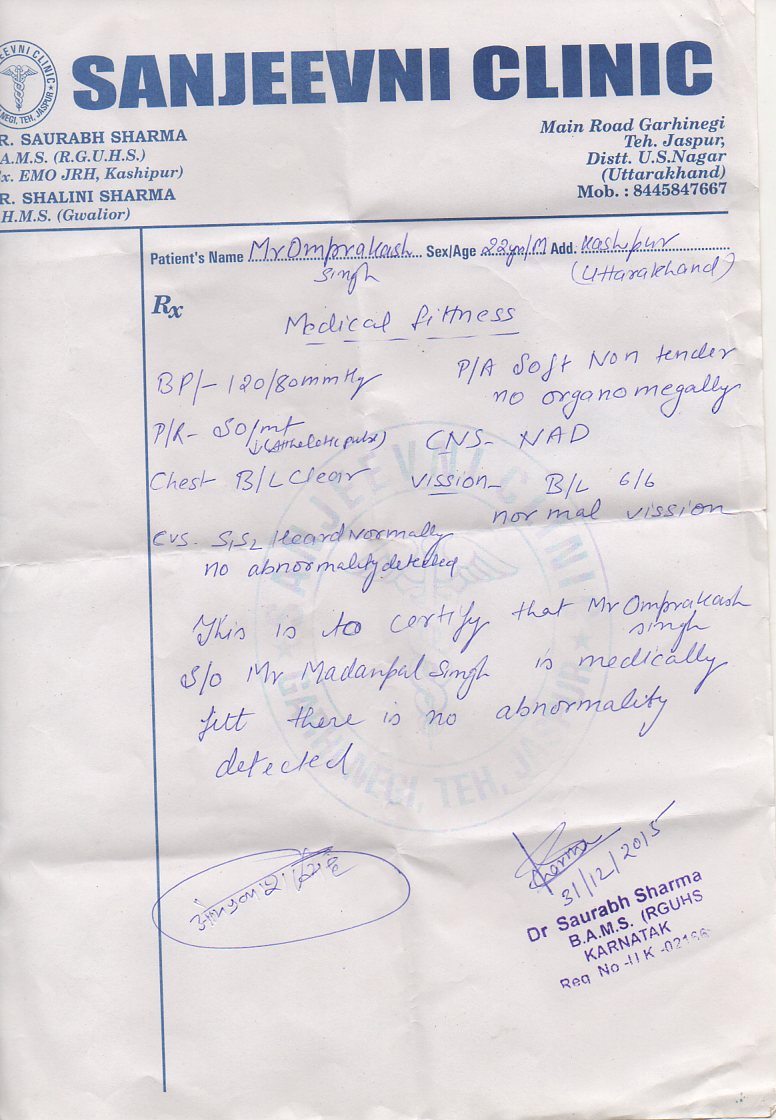 SANJEEVNI CLINIC
R. SAURABH SHARMA
A.M.S. (R.G.U.H.S.)
x. EMO JRH, Kashipur)
R. SHALINI SHARMA
H.M.S. (Gwalior)
Main Road Garhinegi
Teh. Jaspur,
Distt. U.S.Nagar
(Uttarakhand)
Mob. : 8445847667
Patient's Name Mr Omprakash Singh Sex/Age 22yr/M Add. Kashipur
(Uttarakhand)
Rx
Medical fittness
BP/- 120/80mmHg
P/A Soft Non tender
no organomegally
P/R- 50/mt
↓(Atheletic pulse)
CNS- NAD
Chest B/L Clear
vission- B/L 6/6
normal vission
CVS. S1S2 Heard Normally
no abnormality detected
This is to certify that Mr Omprakash
Singh
S/o Mr Madanpal Singh is medically
fitt there is no abnormality
detected
Sharma
31/12/2015
Dr Saurabh Sharma
B.A.M.S. (RGUHS
KARNATAK
Reg No -UK -02166
SANJEEVNI CLINIC
GARHINEGI, TEH, JASPUR